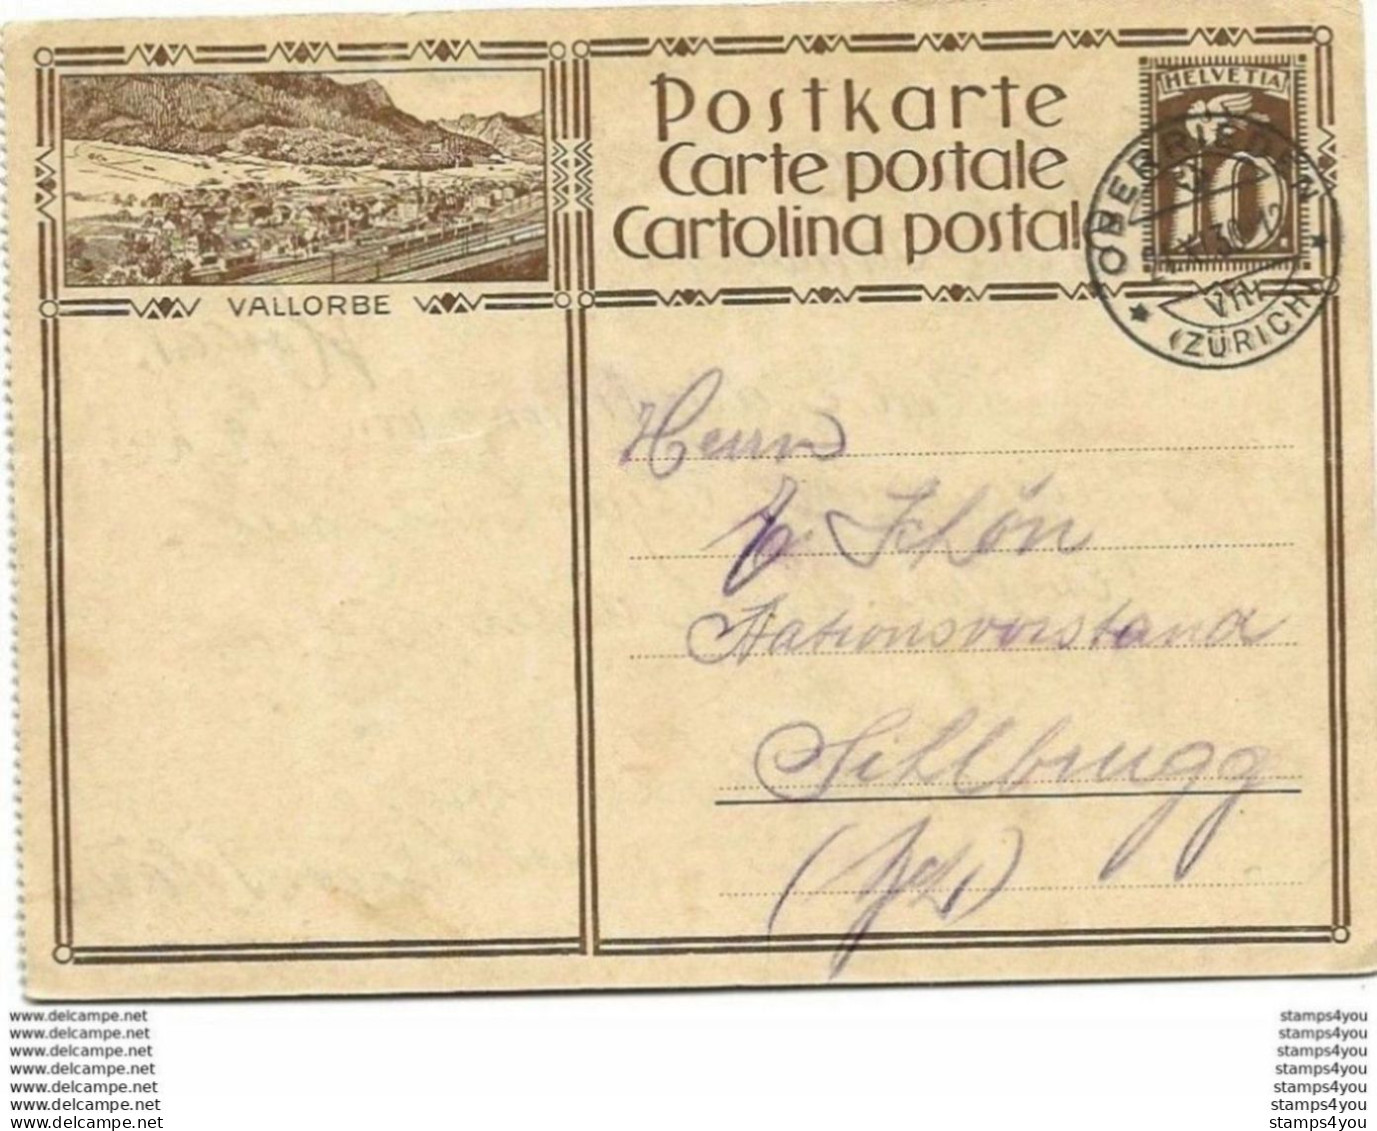 Postkarte
Carte postale
Cartolina postal
HELVETIA
10
OBERRIEDEN
(ZÜRICH)
VALLORBE
Herrn
Schön
Stationsvorstand
Sihlbrugg
www.delcampe.net
www.delcampe.net
www.delcampe.net
www.delcampe.net
www.delcampe.net
www.delcampe.net
www.delcampe.net
stamps4you
stamps4you
stamps4you
stamps4you
stamps4you
stamps4you
stamps4you